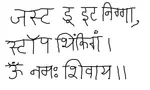 जस्ट डू इट निग्गा,
स्टॉप थिंकिंग।
ॐ नमः शिवाय।।